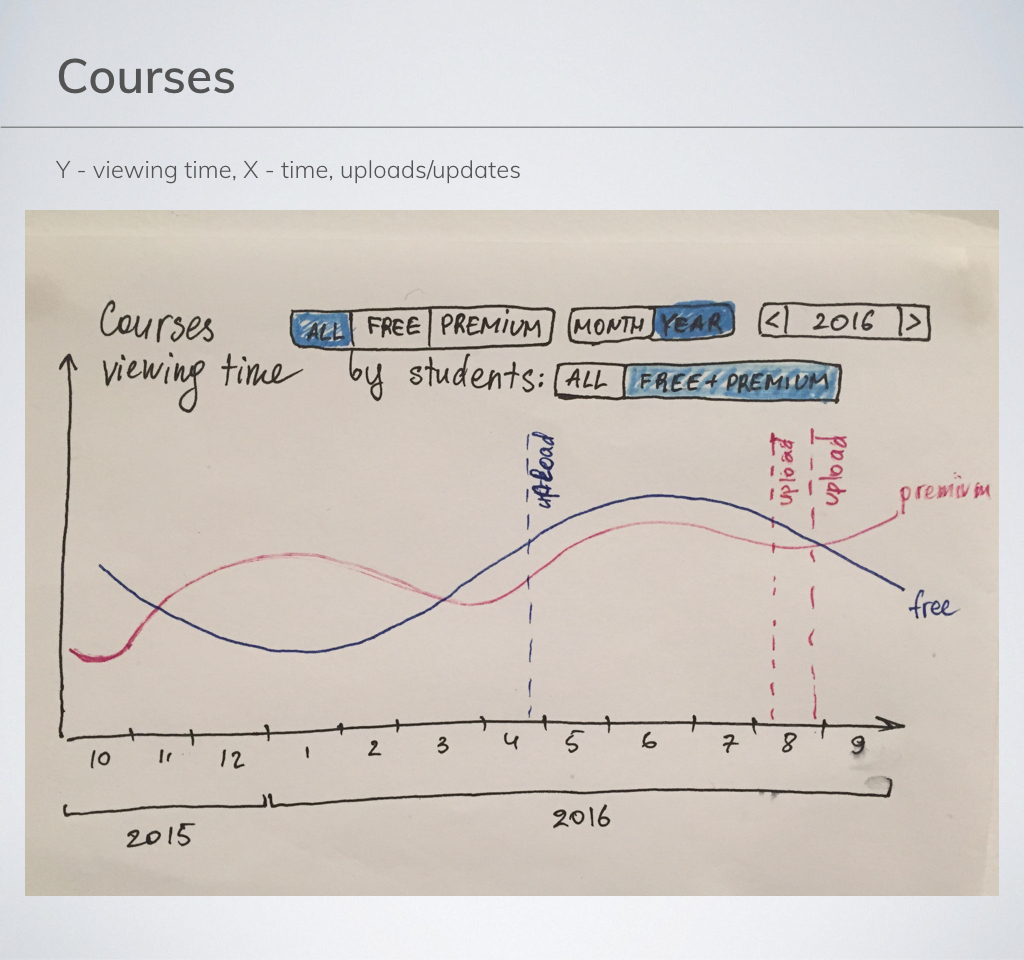 Courses
Y - viewing time, X - time, uploads/updates
Courses ALL FREE PREMIUM MONTH YEAR < 2016 >
viewing time by students: ALL FREE + PREMIUM
upload upload upload
premium
free
10 11 12 1 2 3 4 5 6 7 8 9
2015 2016